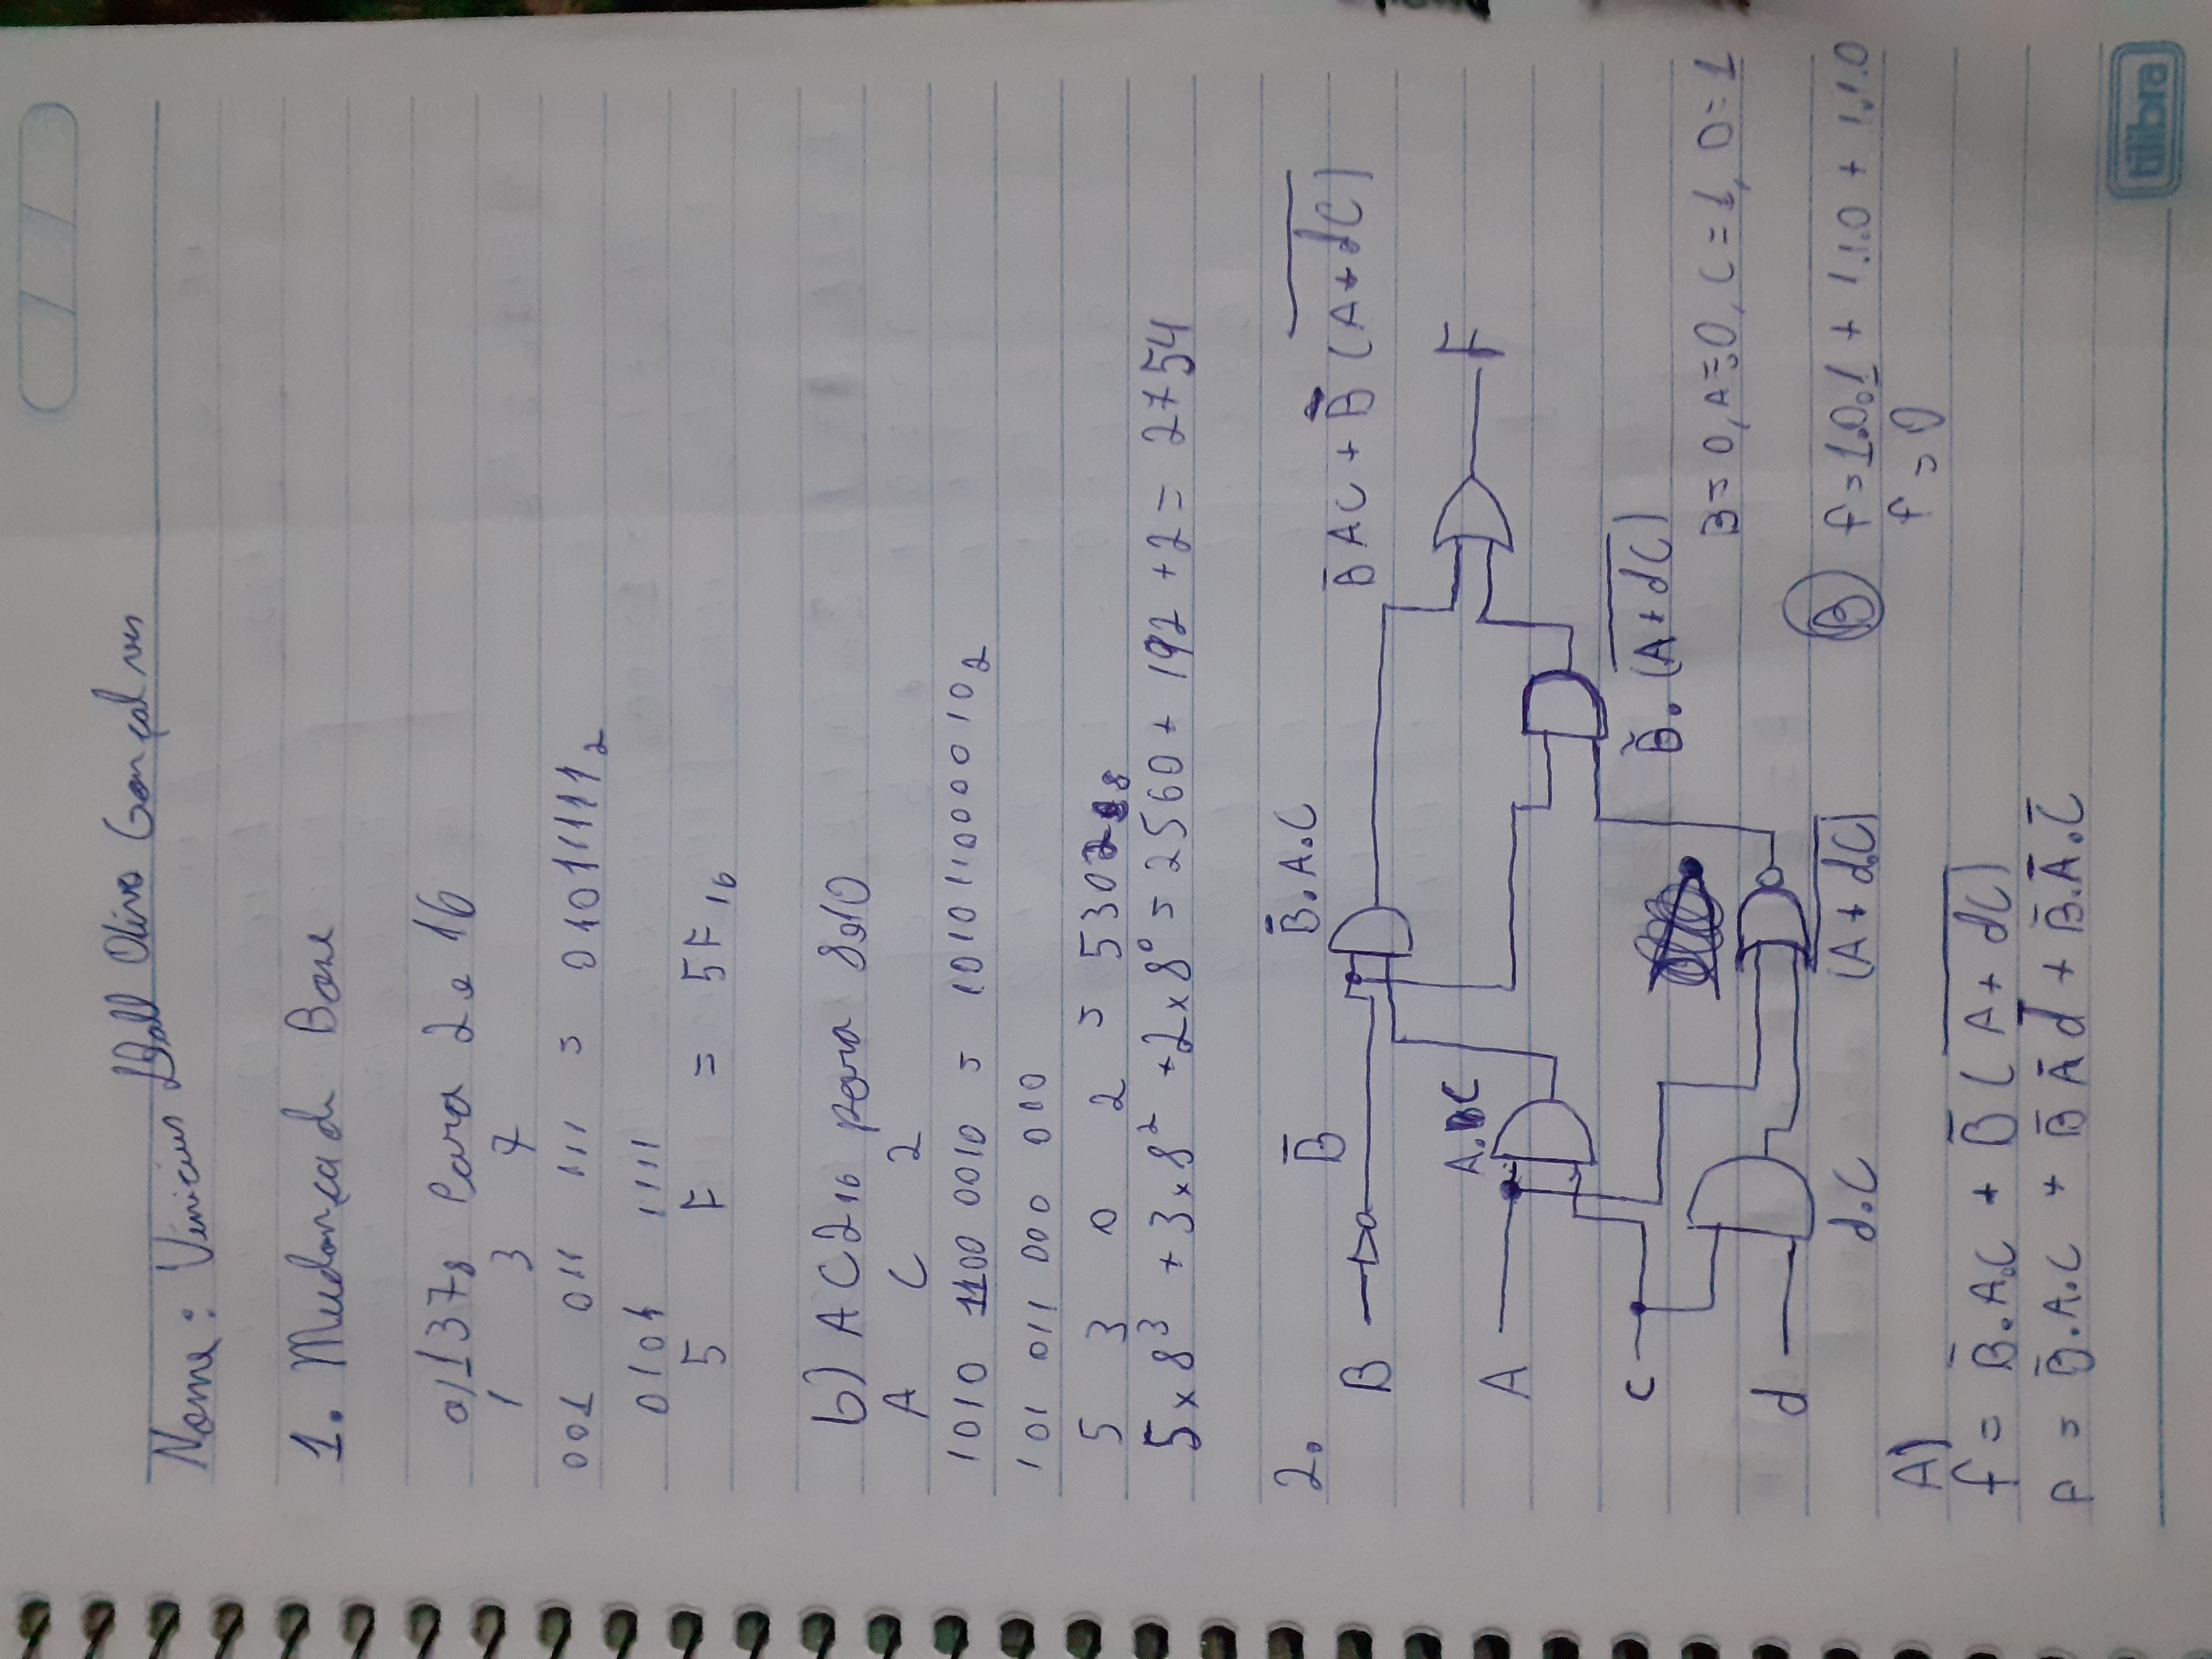 Nome: Vinicius Dall Olivo Gonçalves
1. Mudança de Base
a) 137₈ para 2 e 16
1 3 7
001 011 111 = 01011111₂
0101 1111
5 F = 5F₁₆
b) AC2₁₆ para 8 e 10
A C 2
1010 1100 0010 = 101011000010₂
101 011 000 010
5 3 0 2 = 5302₈
5 x 8³ + 3 x 8² + 2 x 8⁰ = 2560 + 192 + 2 = 2754
2.
B̅
B̅.A.C
B̅AC + B̅ (A̅ ̅+̅ ̅d̅C̅)
B
A.C
A
F
C
B̅.(A̅ ̅+̅ ̅d̅C̅)
B = 0, A = 0, C = 1, D = 1
d
d.C
(A̅ ̅+̅ ̅d̅.̅C̅)
B f = 1.0.1 + 1.1.0 + 1.1.0
f = 0
A)
f = B̅.A.C + B̅ (A̅ ̅+̅ ̅d̅C̅)
F = B̅.A.C + B̅ A̅ d̅ + B̅.A̅.C̅
tilibra